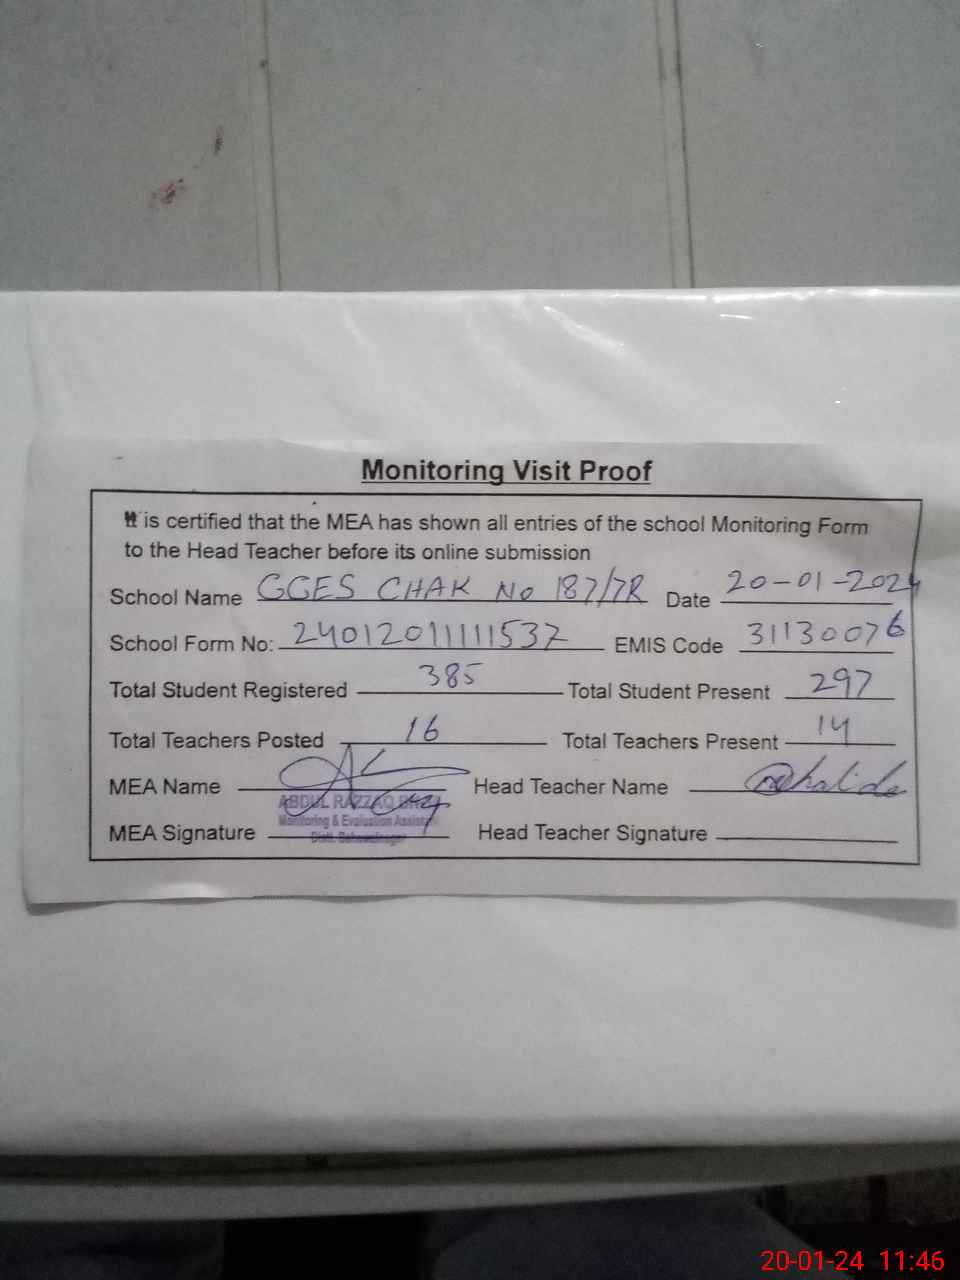 Monitoring Visit Proof
It is certified that the MEA has shown all entries of the school Monitoring Form
to the Head Teacher before its online submission
School Name GGES CHAK No 187/7R Date 20-01-2024
School Form No: 24012011111537 EMIS Code 31130076
Total Student Registered 385 Total Student Present 297
Total Teachers Posted 16 Total Teachers Present 14
MEA Name Head Teacher Name
ABDUL RAZZAQ
Monitoring & Evaluation Assistant
MEA Signature Head Teacher Signature
Distt. Bahawalnagar
20-01-24 11:46